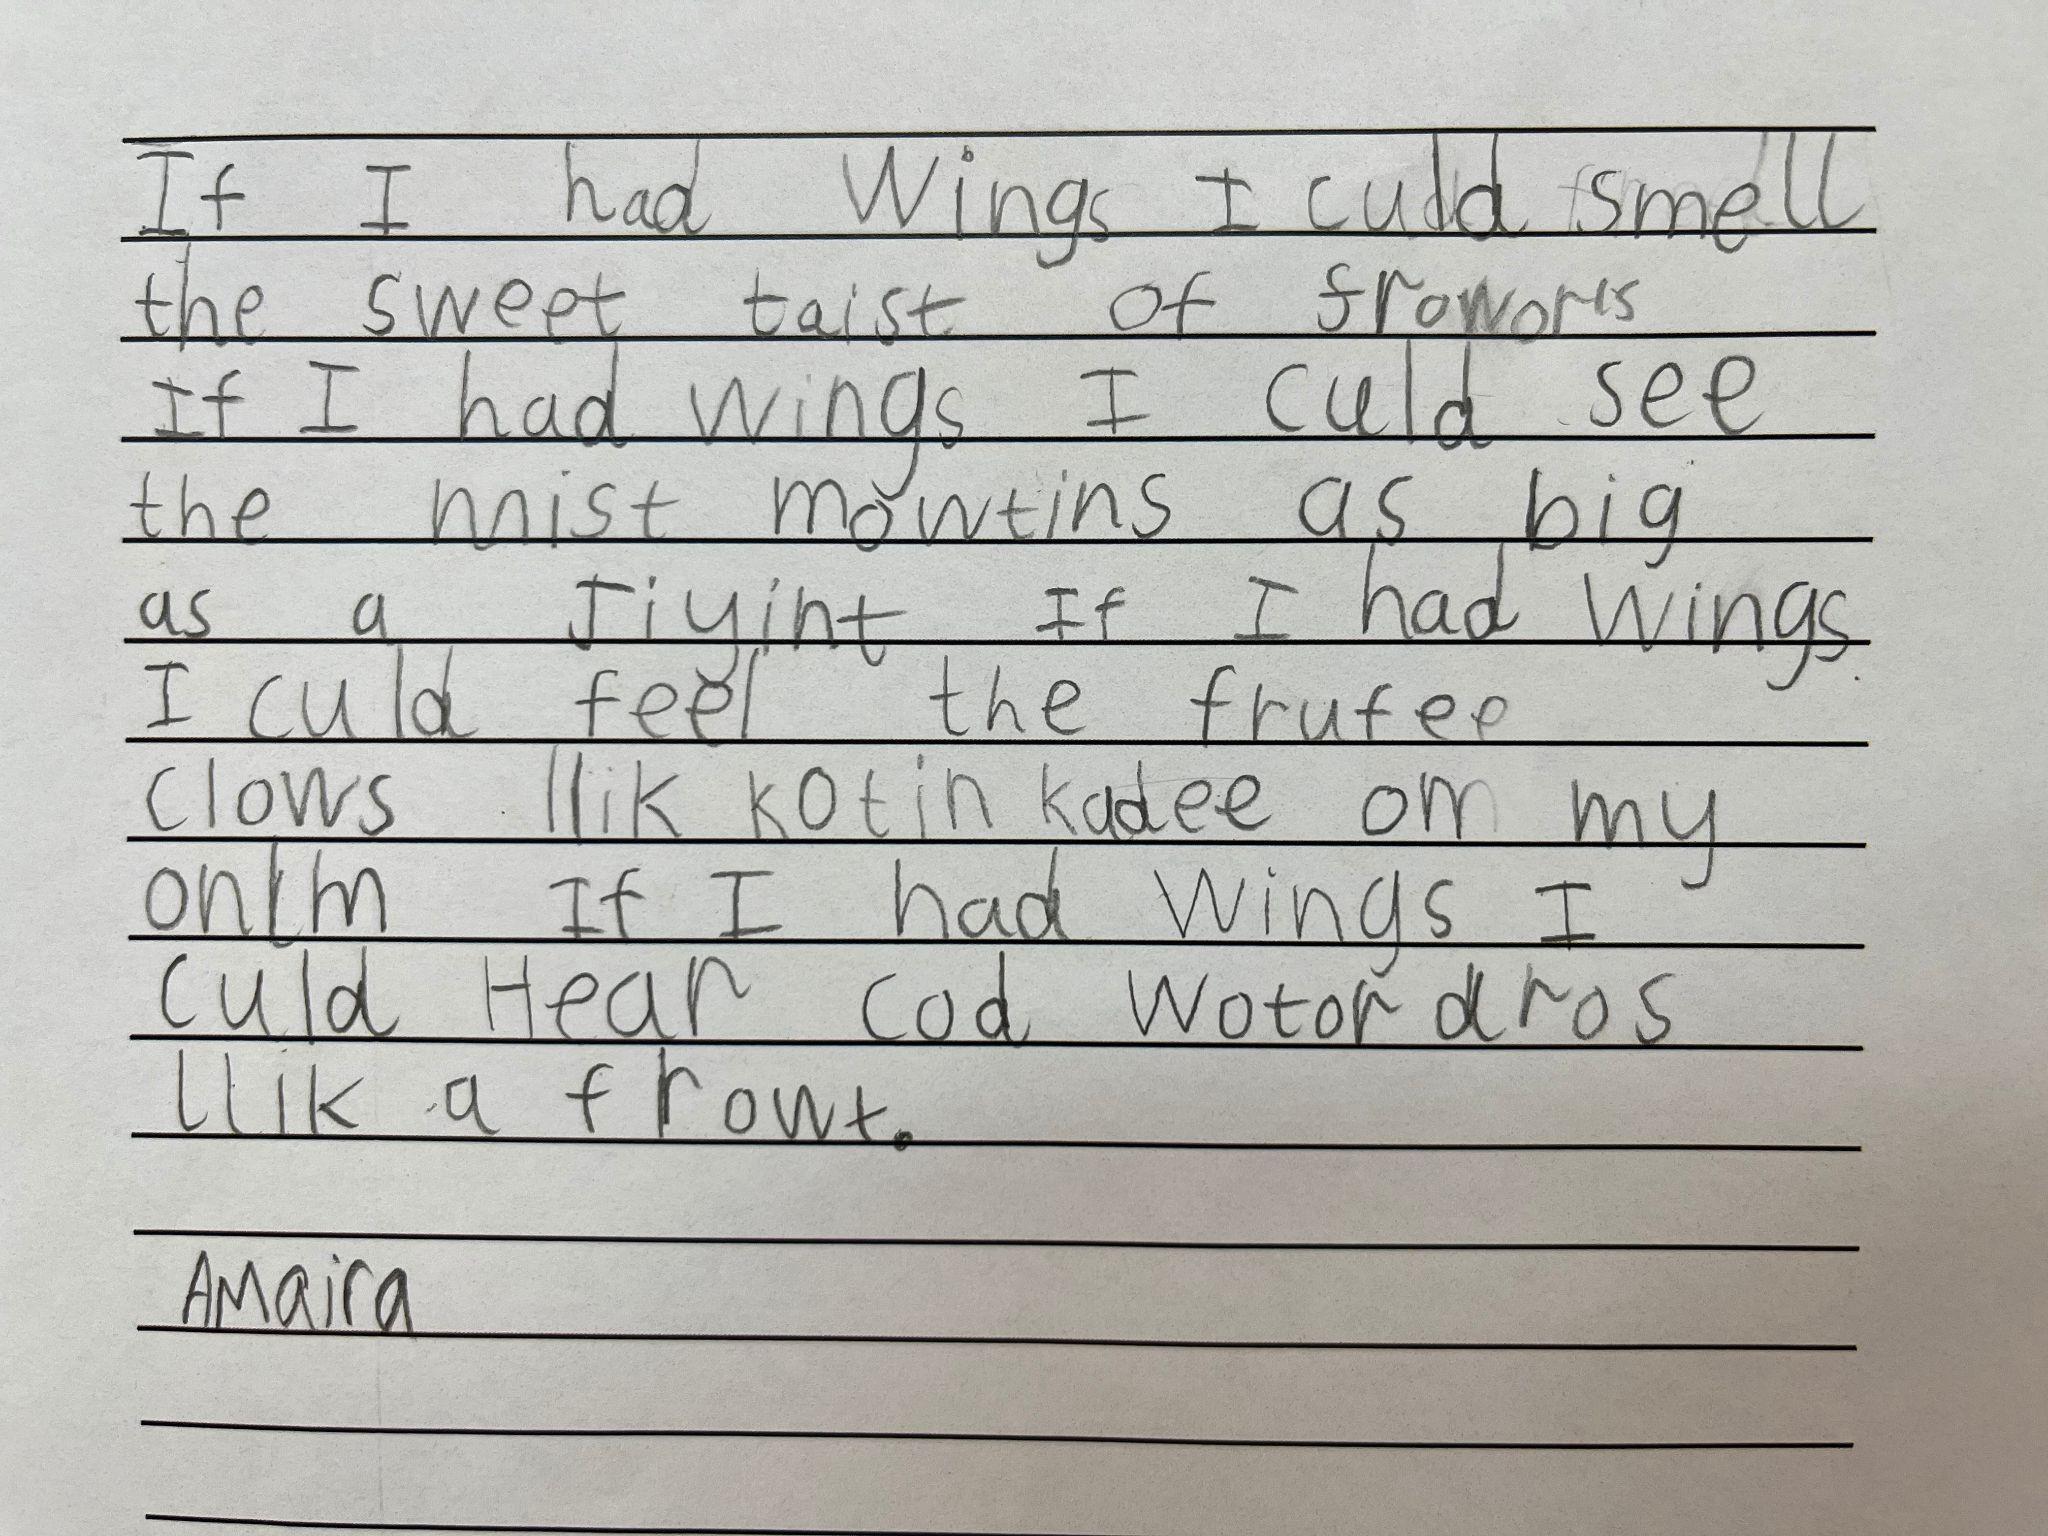 If I had Wings I culd smell
the sweet taist of froworis
If I had wings I culd see
the mist mowtins as big
as a Jiyint If I had Wings
I culd feel the frufee
clows llik kotin kadee on my
If I had Wings I
culd Hear cod Wotor dros
llik a frowt.
Amaira